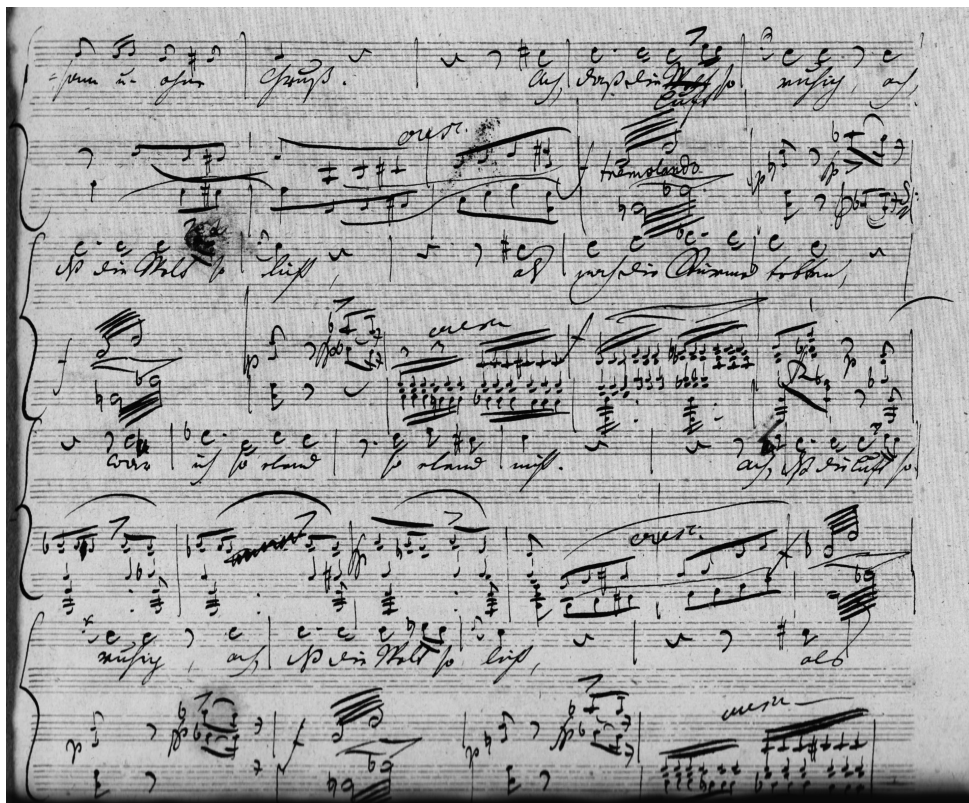 -sam u. ohne Gruß. Ach, daß die Luft so ruhig, ach,
cresc. f tremolando p fp
daß die Welt so licht, als noch die Stürme tobten,
f p fp cresc f p
war ich so elend so elend nicht. ach, daß die Luft so
fp cresc. f
ruhig, ach, daß die Welt so licht, als
p fp f p fp cresc